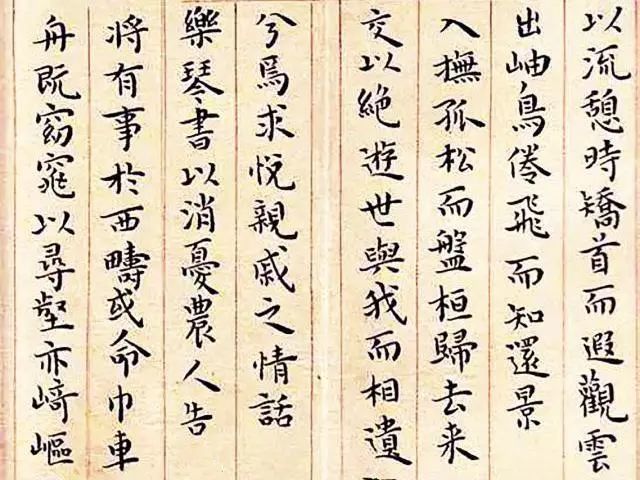 以流憩時矯首而遐觀雲
出岫鳥倦飛而知還景
入撫孤松而盤桓歸去来
交以絶遊世與我而相遺
兮焉求悅親戚之情話
樂琴書以消憂農人告
將有事於西疇或命巾車
舟既窈窕以尋壑亦崎嶇